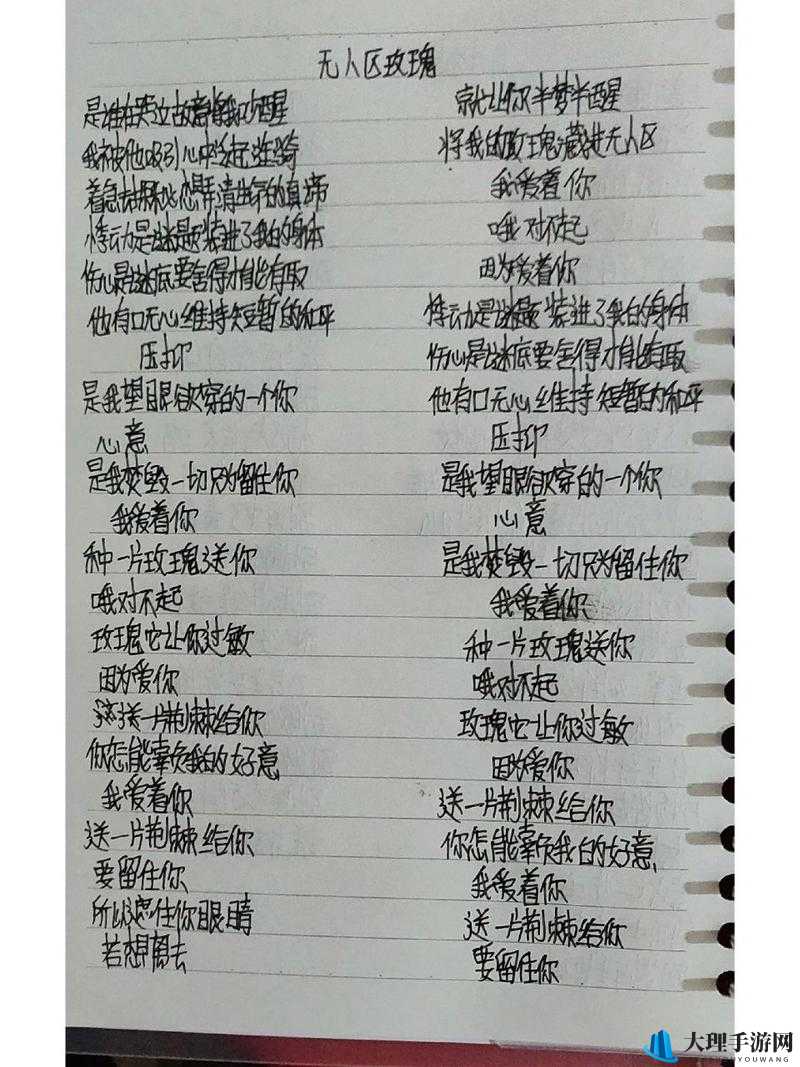 无人区玫瑰
是谁在旁边故意将我吵醒
我被他吸引心中泛起涟漪
着急去探秘想弄清生命的真谛
悸动是谜题装进了我的身体
伤心是谜底要舍得才能有取
他有口无心维持短暂的和平
压抑
是我望眼欲穿的一个你
心意
是我焚毁一切只为留住你
我爱着你
种一片玫瑰送你
哦对不起
玫瑰它让你过敏
因为爱你
送一片荆棘给你
你怎能辜负我的好意
我爱着你
送一片荆棘给你
要留住你
所以遮住你眼睛
若想离去
就让你半梦半醒
将我的玫瑰藏进无人区
我爱着你
哦对不起
因为爱着你
悸动是谜题装进了我的身体
伤心是谜底要舍得才能有取
他有口无心维持短暂的和平
压抑
是我望眼欲穿的一个你
心意
是我焚毁一切只为留住你
我爱着你
种一片玫瑰送你
哦对不起
玫瑰它让你过敏
因为爱你
送一片荆棘给你
你怎能辜负我的好意
我爱着你
送一片荆棘给你
要留住你
大理手游网